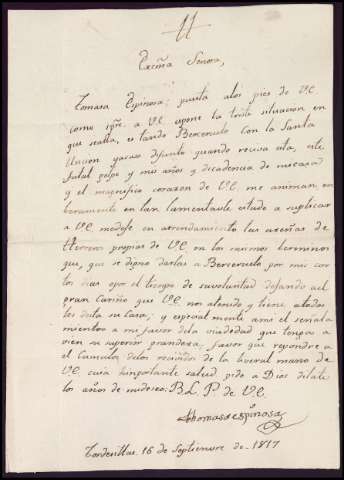 Excma Señora,
Tomasa Espinosa; puesta alos pies de V.E.
como a V.E. espone la triste situacion en
que sealla, estando Berceruelo con la Santa
Uncion yacuso difunto quando reciva esta, este
fatal golpe y mis años y decadencia de micasa
y el magnifico corazon de V.E. me animan, en
teramente en tan lamentable estado a suplicar
a V.E. medese en arrendamiento las aceñas de
Herreros propias de V.E. en los mismos terminos
que, que se digno darlas a Berceruelo por mis cor
tos dias opor el tiempo de suvoluntad dejando ael
gran Cariño que V.E. nos atenido y tiene atodos
los desta su casa; y especial mente ami el señala
miento a mi favor dela viudedad que tenga a
vien su superior grandeza, favor que respondre a
el Cumulo delos recividos de la liveral mano de
V.E. cuia ymportante salud pido a Dios dilate
los años de mideseo. B. L. P. de V.E.
Thomasa espinosa
Tordesillas 16 de Septiembre de 1817